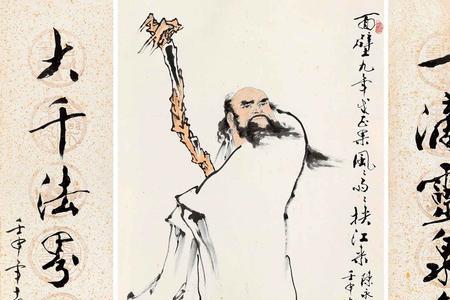 一滴靈泉
面壁九年成正果風扶江來
壬申
大千法界
壬申